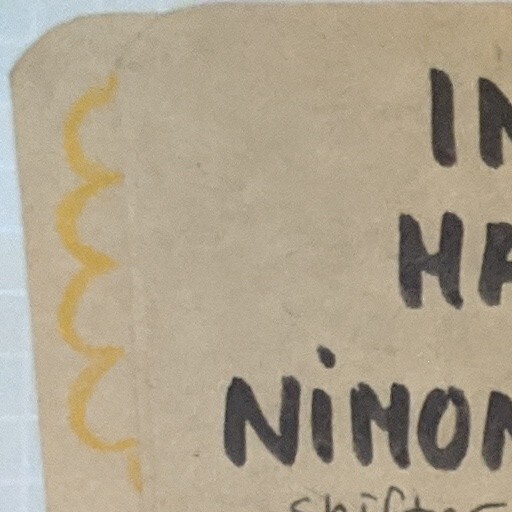 IN
HA
NiMON
shifter